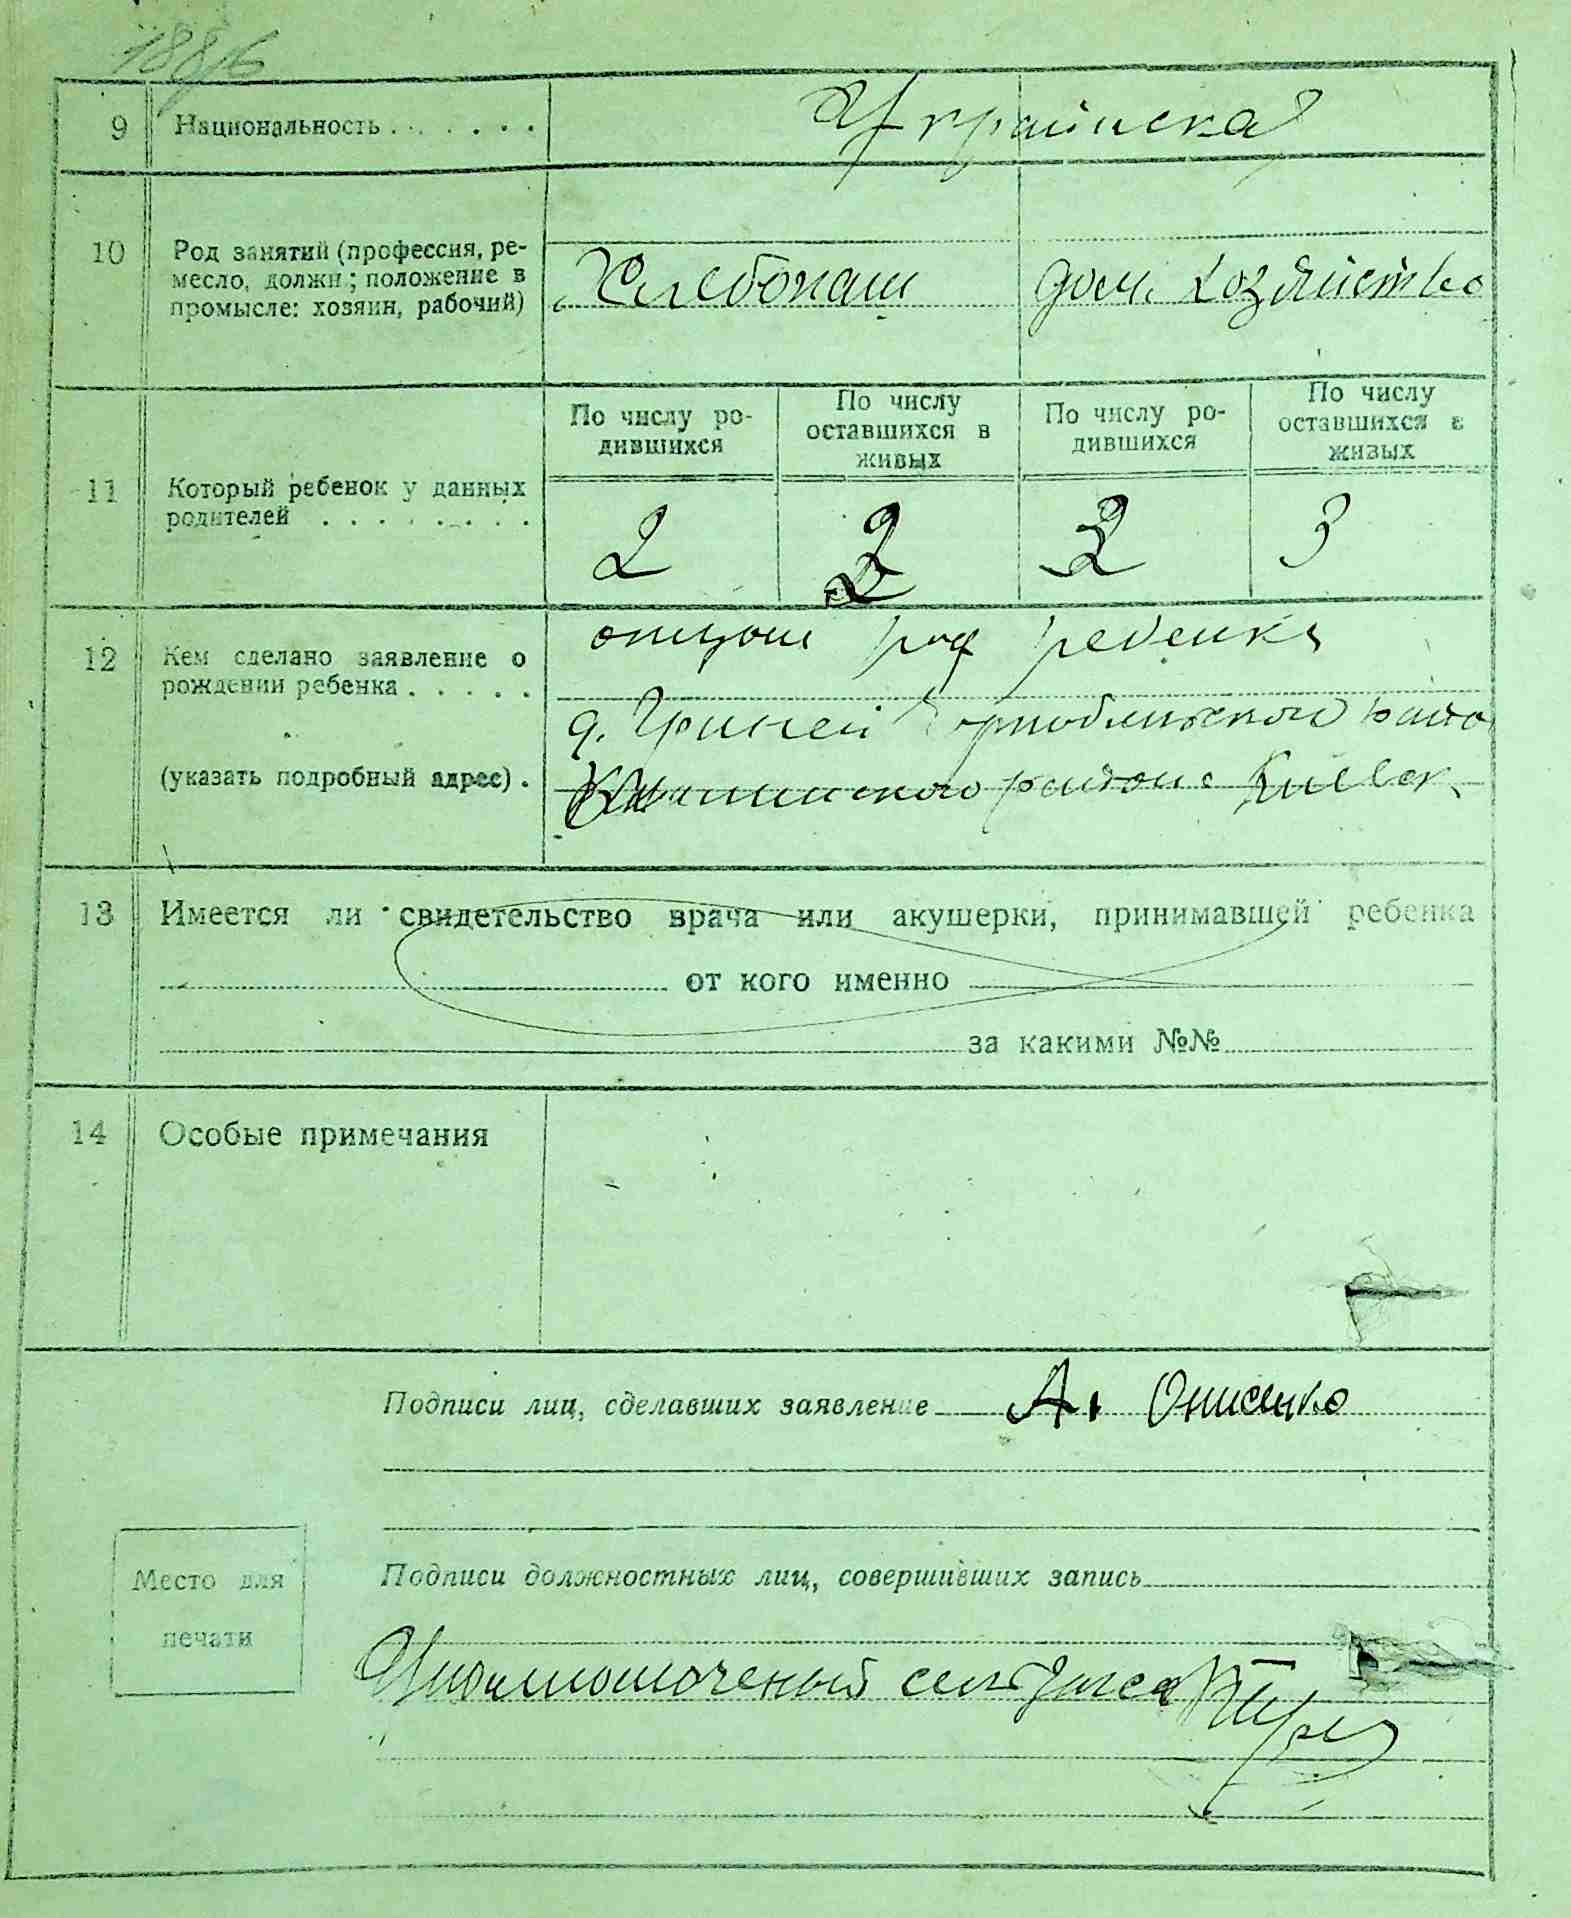 9 Национальность . . . . . . . Украинска
10 Род занятий (профессия, ре-
месло, должн; положение в
промысле: хозяин, рабочий)
Хлебопаш дом. хозяйство
По числу ро-
дившихся
По числу
оставшихся в
живых
По числу ро-
дившихся
По числу
оставшихся в
живых
11 Который ребенок у данных
родителей . . . . . . . .
2 2 3
12 Кем сделано заявление о
рождении ребенка . . . . .
(указать подробный адрес) .
отцом ребенка
д.
района Киевск
13 Имеется ли свидетельство врача или акушерки, принимавшей ребенка
от кого именно
за какими №№
14 Особые примечания
Подписи лиц, сделавших заявление А. Онисенко
Место для
печати
Подписи должностных лиц, совершивших запись
Уполномоченый